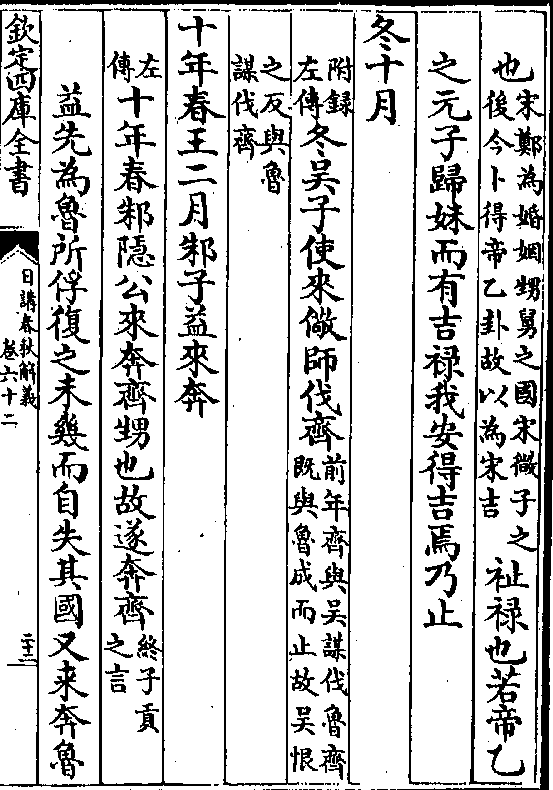 也宋鄭為婚姻甥舅之國宋微子之
後今卜得帝乙卦故以為宋吉祉禄也若帝乙
之元子歸妹而有吉禄我安得吉焉乃止
冬十月
附録
左傳冬吴子使來儆師伐齊前年齊與吴謀伐魯齊
既與魯成而止故吴恨
之反與魯
謀伐齊
十年春王二月邾子益來奔
左
傳十年春邾隠公來奔齊甥也故遂奔齊終子貢
之言
益先為魯所俘復之未幾而自失其國又来奔魯
欽定四庫全書
日講春秋解義
卷六十二
二十三